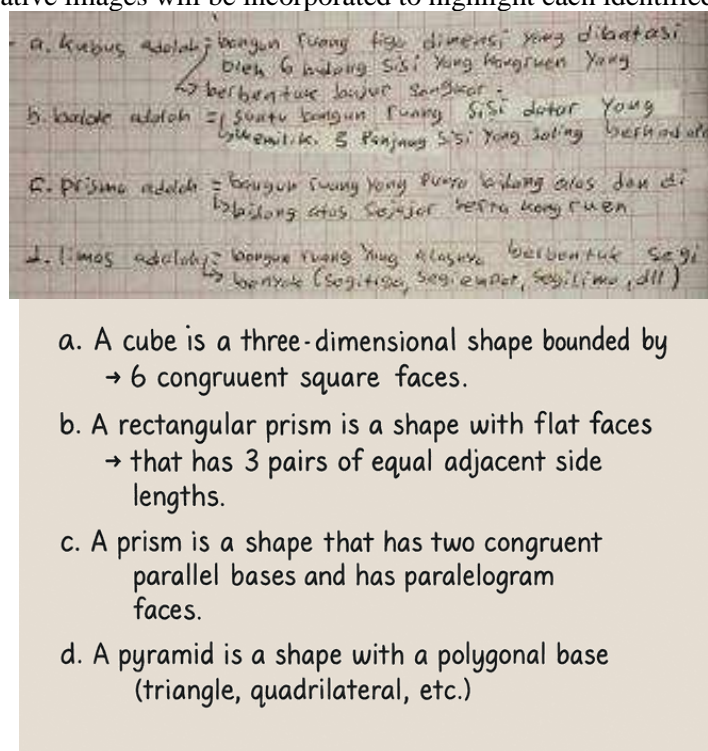 ative images will be incorporated to highlight each identified
a. kubus adalah = bangun ruang tiga dimensi yang dibatasi
oleh 6 bidang sisi yang kongruen yang
berbentuk bujur sangkar.
b. balok adalah = suatu bangun ruang sisi datar yang
memiliki 3 panjang sisi yang saling berhadap
c. prisma adalah = bangun ruang yang punya bidang alas dan di
bidang atas sejajar serta kongruen
d. limas adalah = bangun ruang yang alasnya berbentuk segi
banyak (segitiga, segiempat, segilima, dll)
a. A cube is a three-dimensional shape bounded by
→ 6 congruuent square faces.
b. A rectangular prism is a shape with flat faces
→ that has 3 pairs of equal adjacent side
lengths.
c. A prism is a shape that has two congruent
parallel bases and has paralelogram
faces.
d. A pyramid is a shape with a polygonal base
(triangle, quadrilateral, etc.)